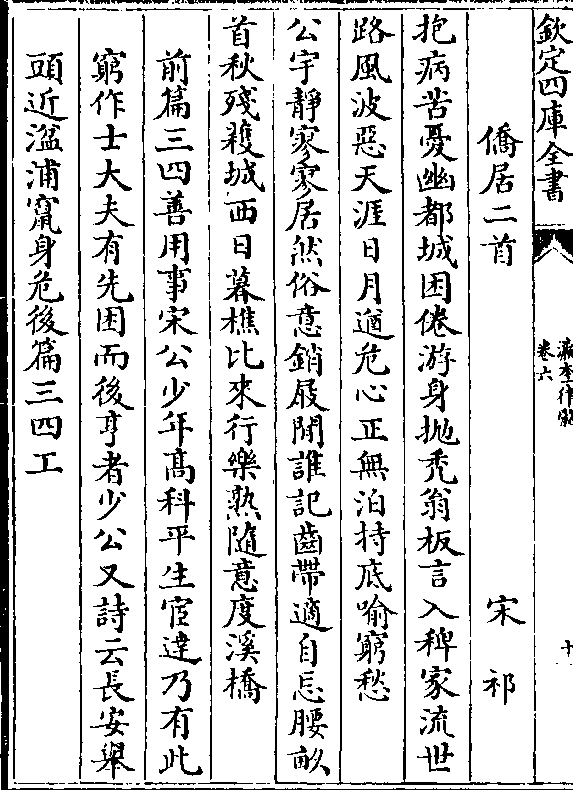 欽定四庫全書
瀛奎律髓
卷六
十
僑居二首　宋祁
抱病苦憂幽都城困倦游身抛禿翁板言入稗家流世
路風波惡天涯日月遒危心正無泊持底喻窮愁
公宇靜寥寥居然俗意銷屐閒誰記齒帶適自忘腰畝
首秋殘穫城西日暮樵比來行樂熟隨意度溪橋
前篇三四善用事宋公少年髙科平生宦達乃有此
窮作士大夫有先困而後亨者少公又詩云長安舉
頭近湓浦竄身危後篇三四工